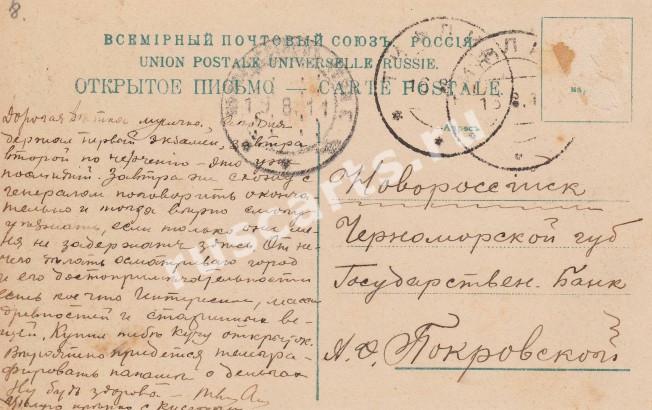 8.
ВСЕМІРНЫЙ ПОЧТОВЫЙ СОЮЗЪ. РОССІЯ.
UNION POSTALE UNIVERSELLE RUSSIE.
ОТКРЫТОЕ ПИСЬМО — CARTE POSTALE
Адресъ
на
19 8 11
Дорогая сегодня
держал первый экзамен, завтра
второй по черчению – это уже
последний. Завтра же схожу с
генералом поговорить оконча-
тельно и тогда верно смогу
уезжать, если только они ме-
ня не задержат здесь. От не-
чего делать осматриваю город
и его достопримечательности
есть кое что интересное, масса
древностей и старинных ве-
щей, Купил тебе кучу открыток.
Вероятно придется телегра-
фировать папаше о деньгах
Ну будь здорова –
Новороссийск
Черноморской губ
Государствен. Банк
А. Ф. Покровской
ruscarts.ru